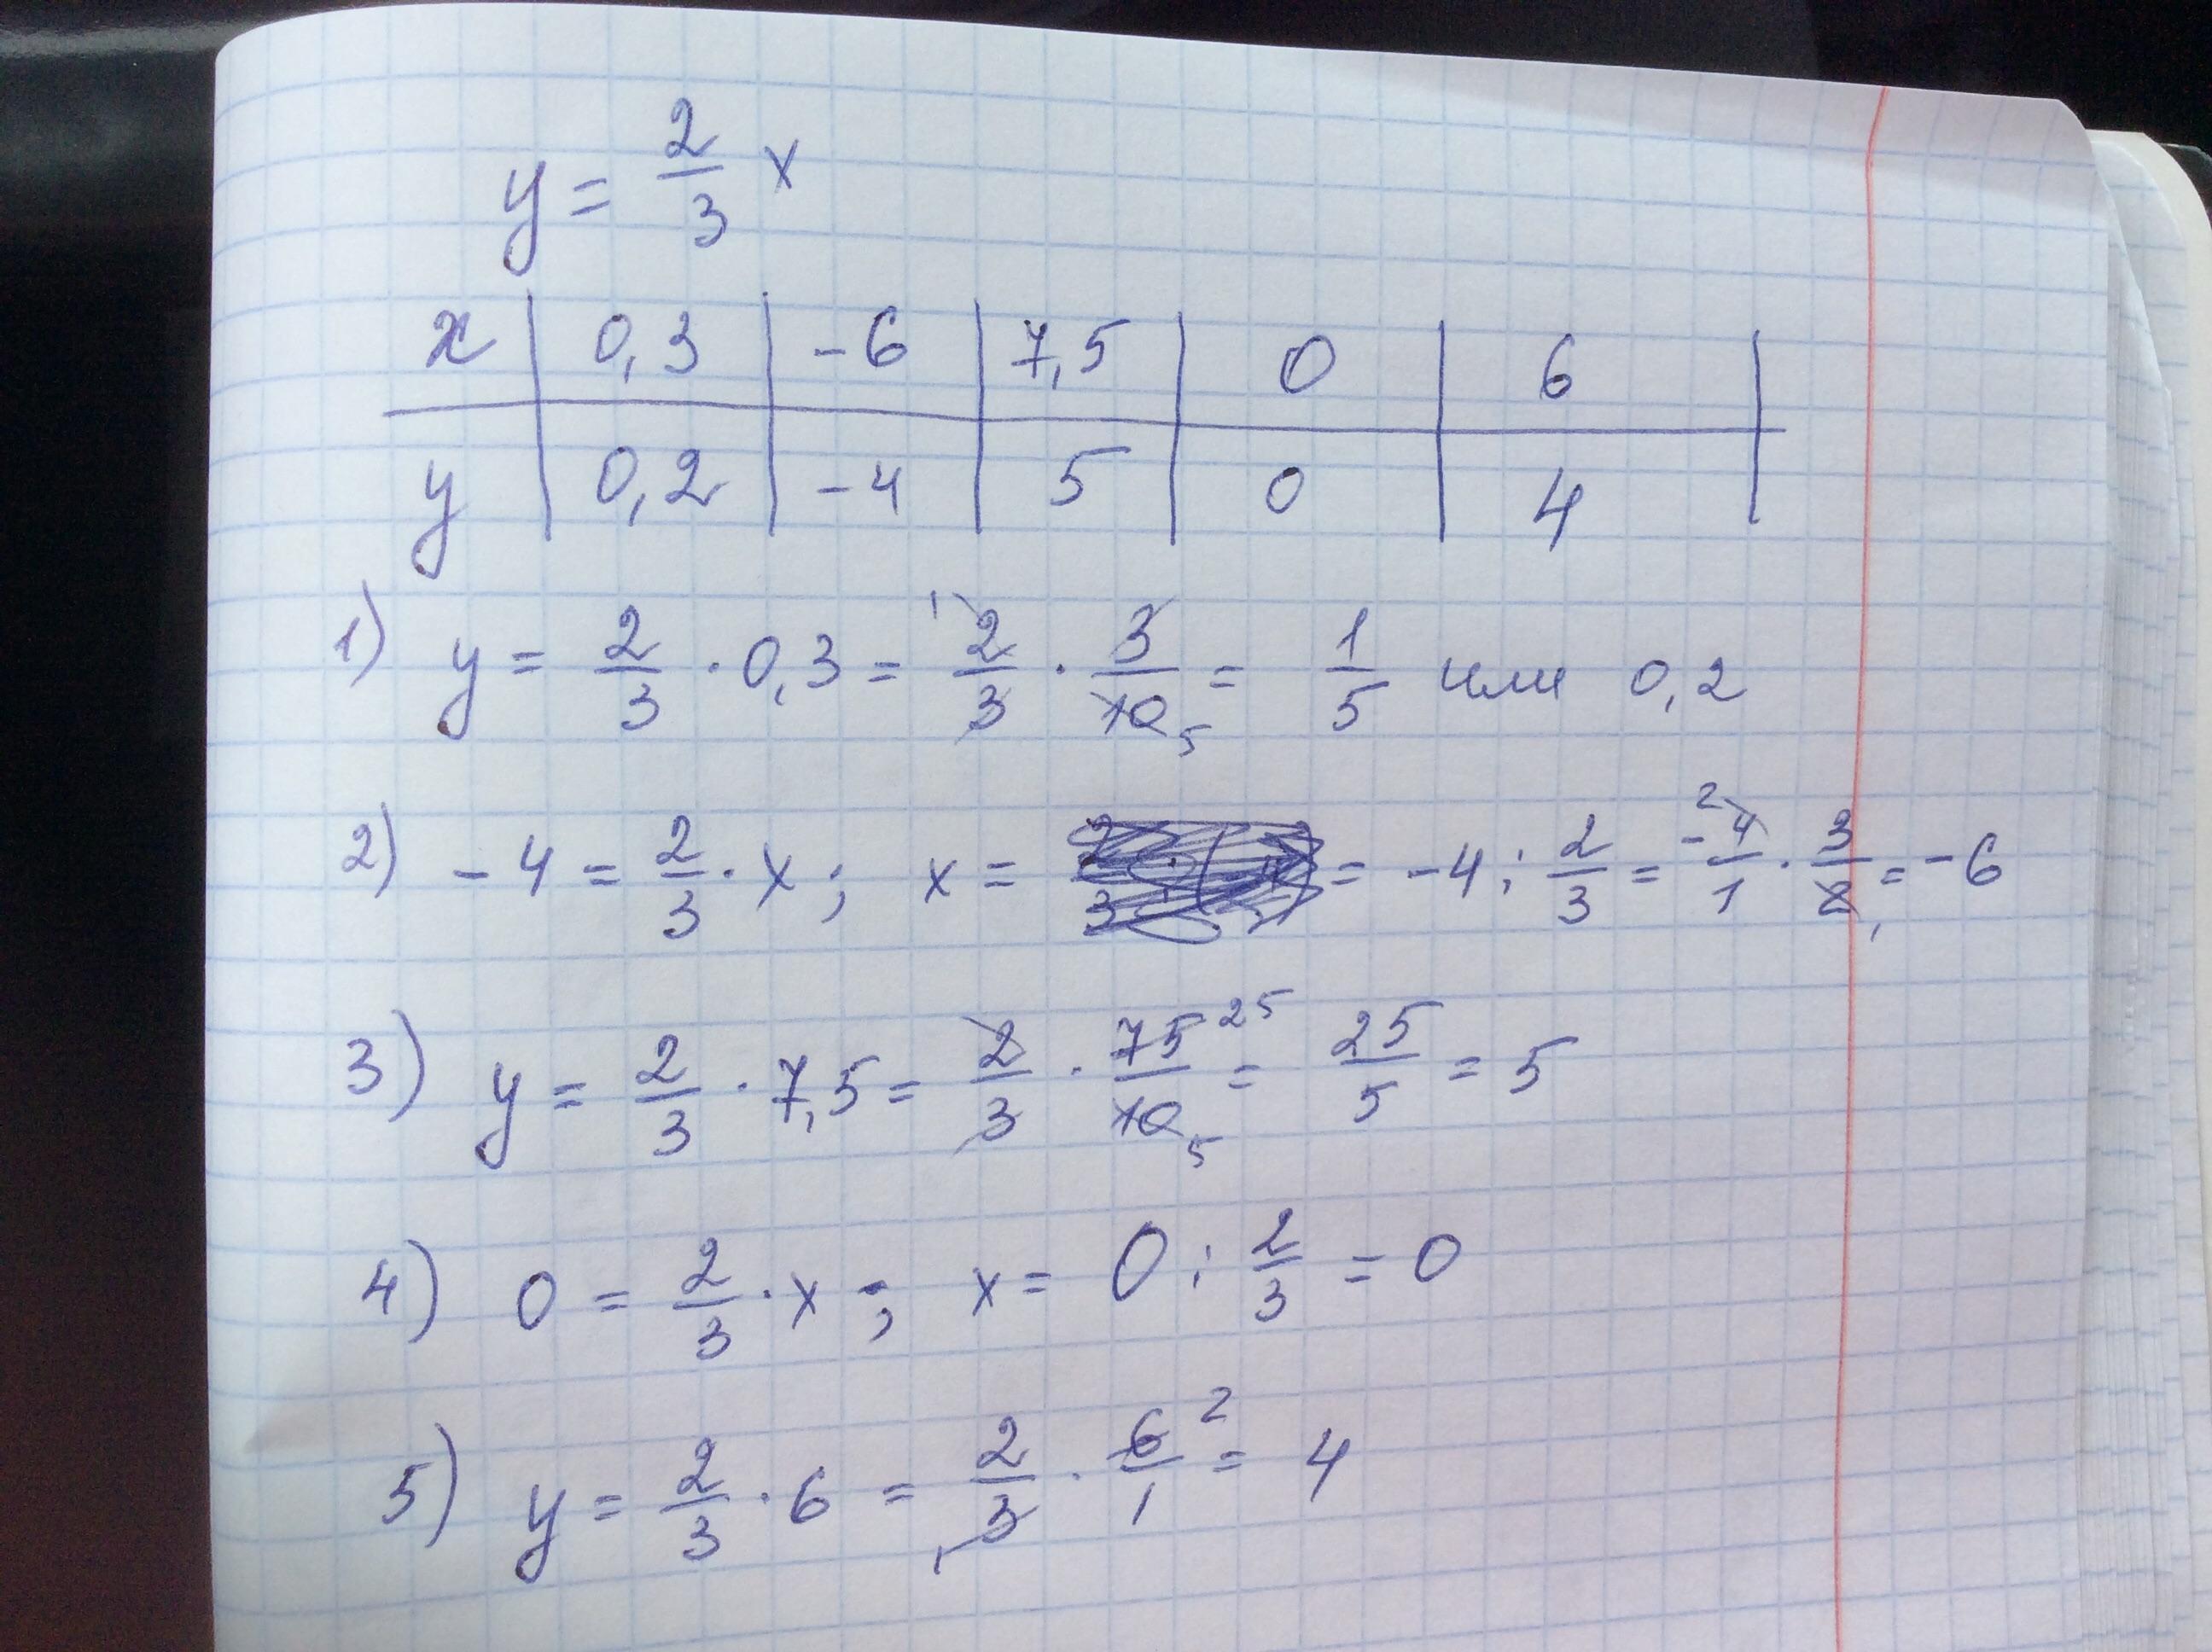 y = 2/3 x
x | 0,3 | -6 | 7,5 | 0 | 6
y | 0,2 | -4 | 5 | 0 | 4
1) y = 2/3 · 0,3 = 2/3 · 3/10 = 1/5 или 0,2
2) -4 = 2/3 · x; x = = -4 : 2/3 = -4/1 · 3/2 = -6
3) y = 2/3 · 7,5 = 2/3 · 75/10 = 25/5 = 5
4) 0 = 2/3 · x; x = 0 : 2/3 = 0
5) y = 2/3 · 6 = 2/3 · 6/1 = 4